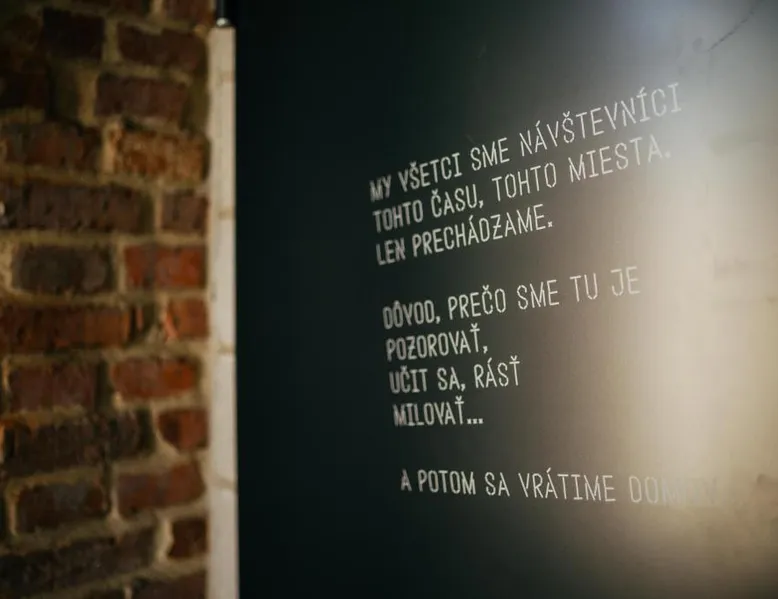 MY VŠETCI SME NÁVŠTEVNÍCI
TOHTO ČASU, TOHTO MIESTA.
LEN PRECHÁDZAME.
DÔVOD, PREČO SME TU JE
POZOROVAŤ,
UČIT SA, RÁSŤ
MILOVAŤ...
A POTOM SA VRÁTIME